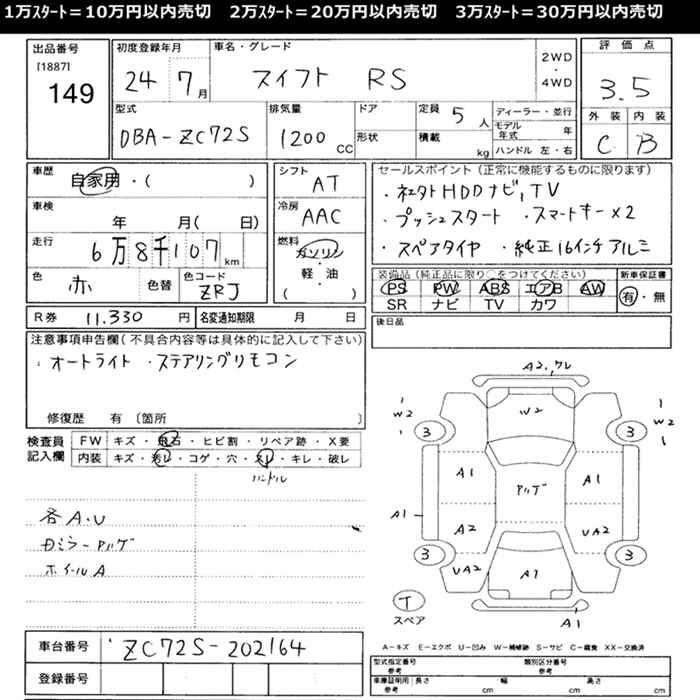 1万ｽﾀｰﾄ＝10万円以内売切　2万ｽﾀｰﾄ＝20万円以内売切　3万ｽﾀｰﾄ＝30万円以内売切
出品番号
[1887]
149
初度登録年月
24 7月
車名・グレード
スイフト RS
2WD
・
4WD
評価点
3.5
外装 内装
C B
型式
DBA-ZC72S
排気量
1200 CC
ドア
形状
定員 5人
積載 kg
ディーラー・並行
モデル年式 年
ハンドル 左・右
車歴
自家用・( )
車検
年 月( 日)
走行
6万8千107km
色
赤
色替
色コード
ZRJ
シフト
AT
冷房
AAC
燃料
ガソリン
・
軽・油
( )
セールスポイント（正常に機能するものに限ります）
・社外HDDナビ,TV
・プッシュスタート ・スマートキー×2
・スペアタイヤ ・純正16インチアルミ
装備品（純正品に限り○をつけてください）
PS PW ABS エアB AW
SR ナビ TV カワ
新車保証書
有・無
R券 11,330 円
名変通知期限 月 日
後日品
注意事項申告欄（不具合内容等は具体的に記入して下さい）
・オートライト ・ステアリングリモコン
修復歴 有 〔箇所 〕
検査員
記入欄
FW キズ・飛石・ヒビ割・リペア跡・X要
内装 キズ・汚レ・コゲ・穴・スレ・キレ・破レ
ハンドル
各A.U
ホイールA
A2,ワレ
W2
W2
W2
3
3
A1
アルゲ
A1
A1
A2
UA2
3
3
UA2
A1
T
スペア
A1
A－キズ E－エクボ U－凹み W－補修跡 S－サビ C－腐食 XX－交換済
車台番号
ZC72S-202164
登録番号
型式指定番号
参考
類別区分番号
参考
車庫証明用
参考
長さ cm
幅 cm
高さ cm